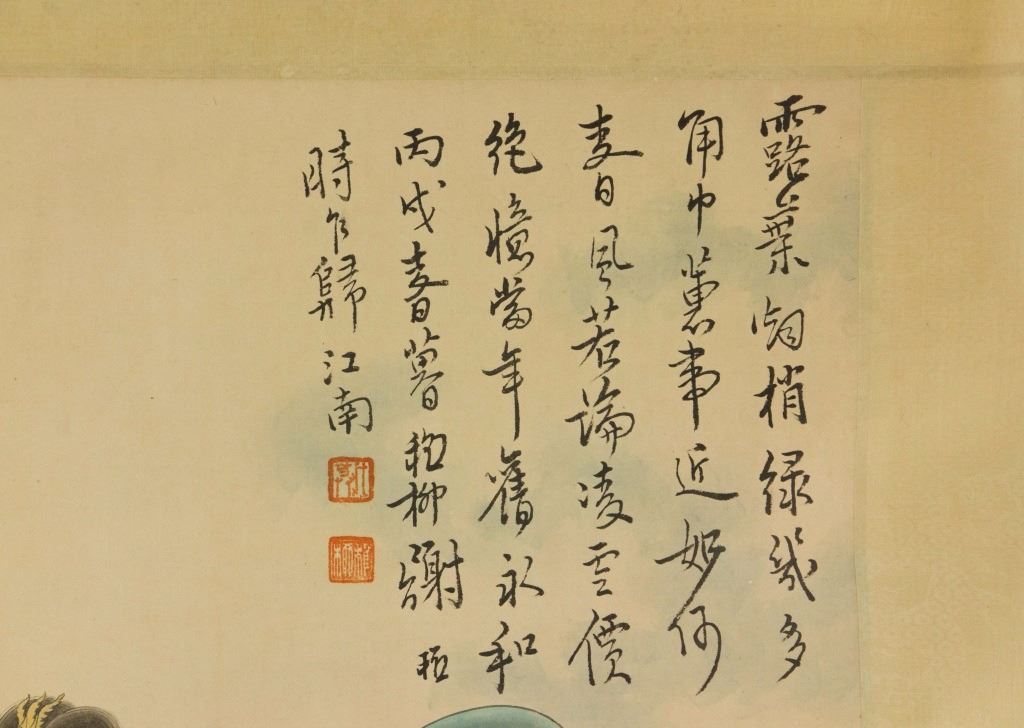 露葉烟梢緑幾多
角巾事近如何
春風若論凌雲價
絶憶當年舊永和
丙戌春暮稚柳謝稚
時乍歸江南